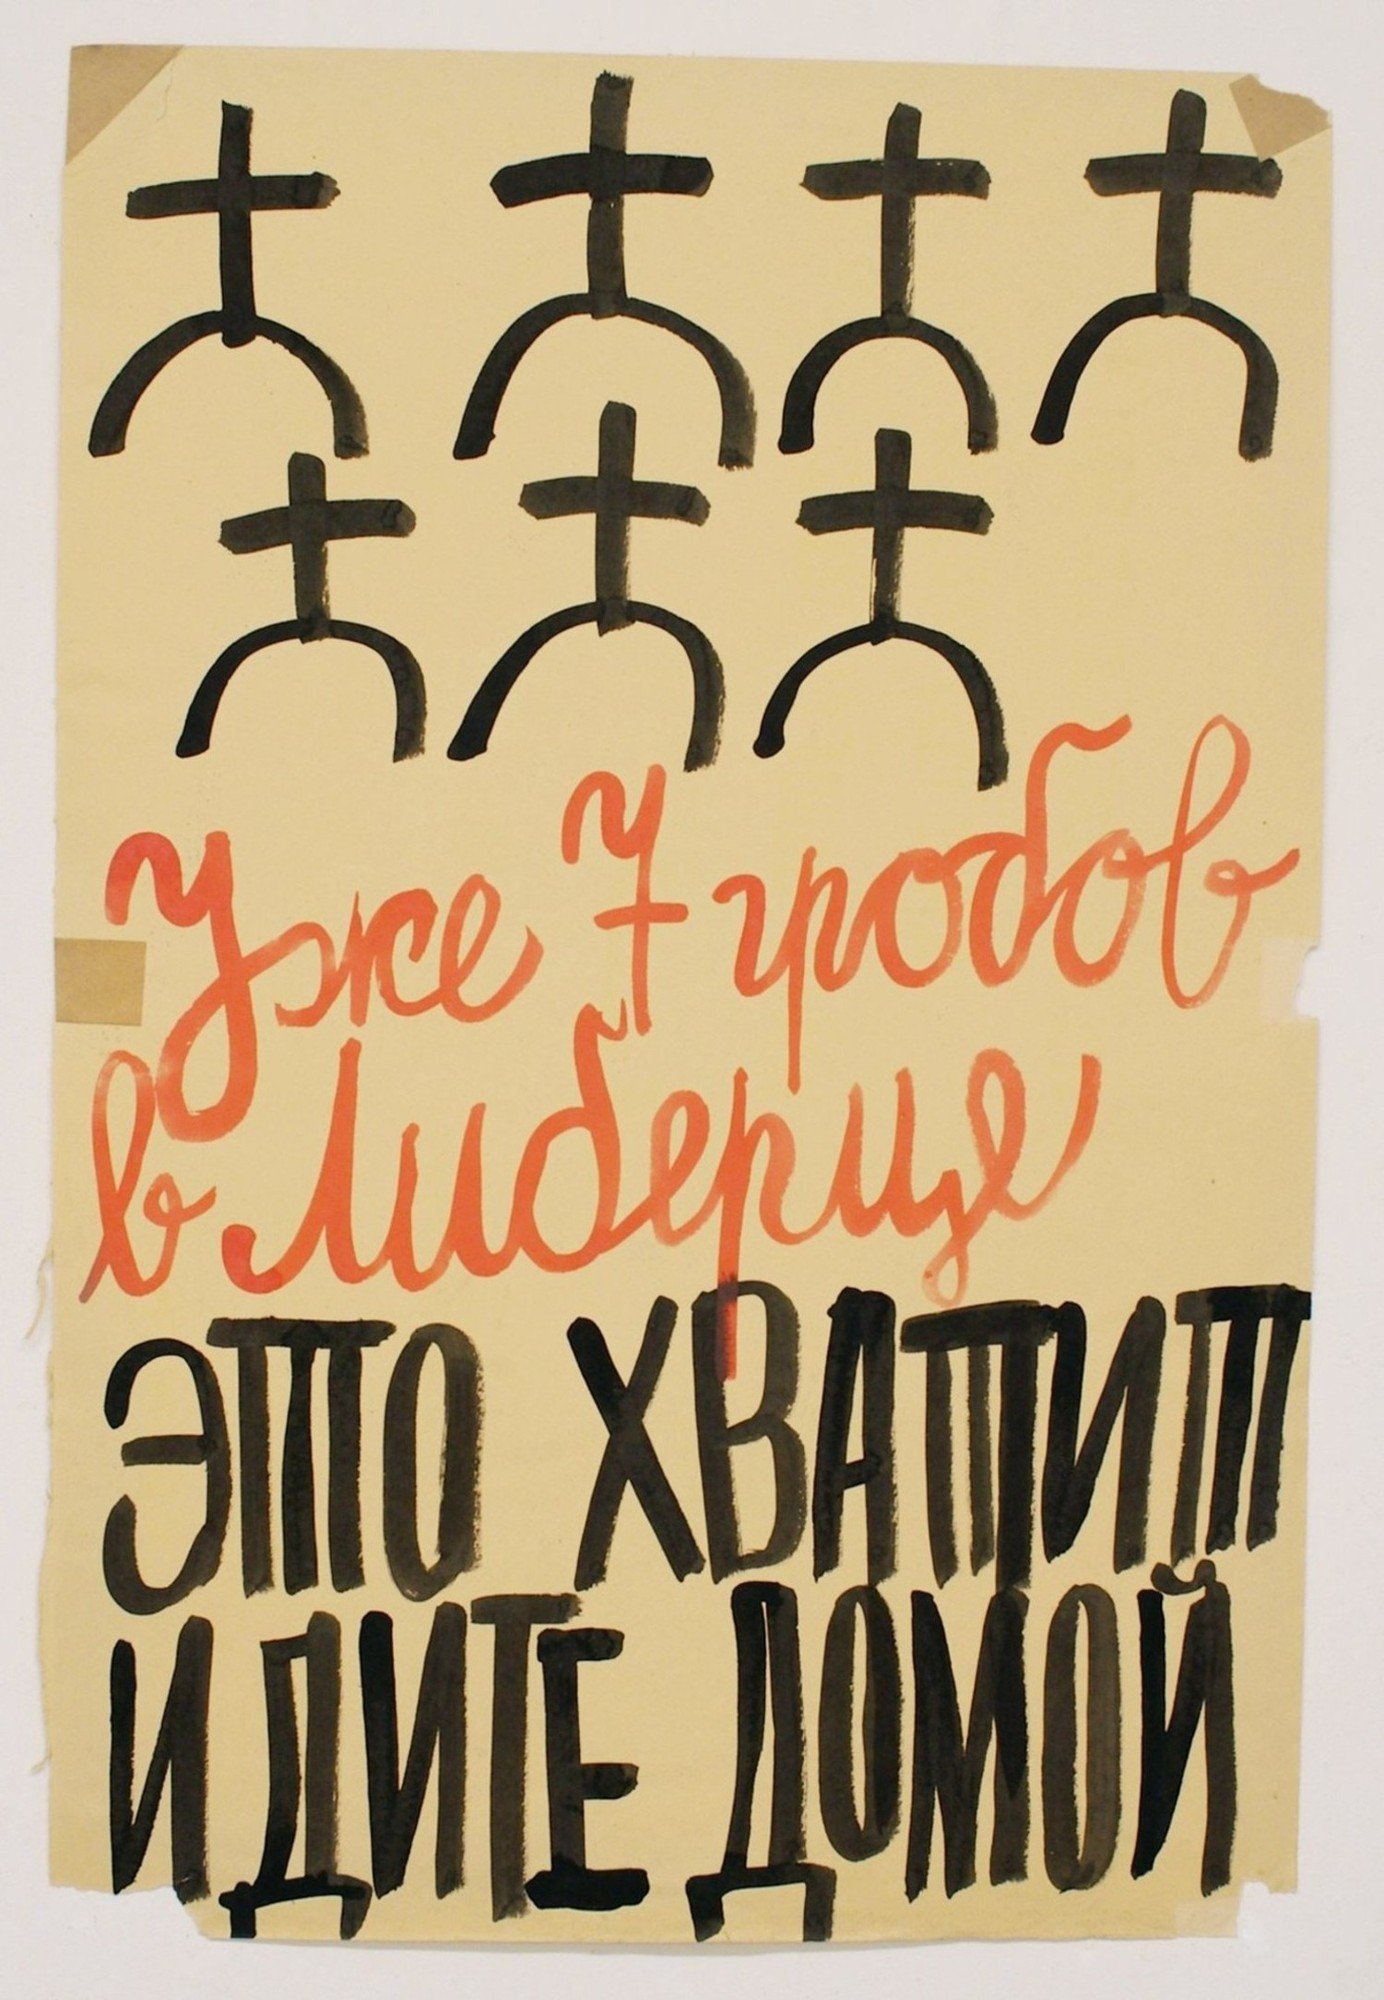 Уже 7 гробов
в Либерце
ЭТО ХВАТИТ
ИДИТЕ ДОМОЙ